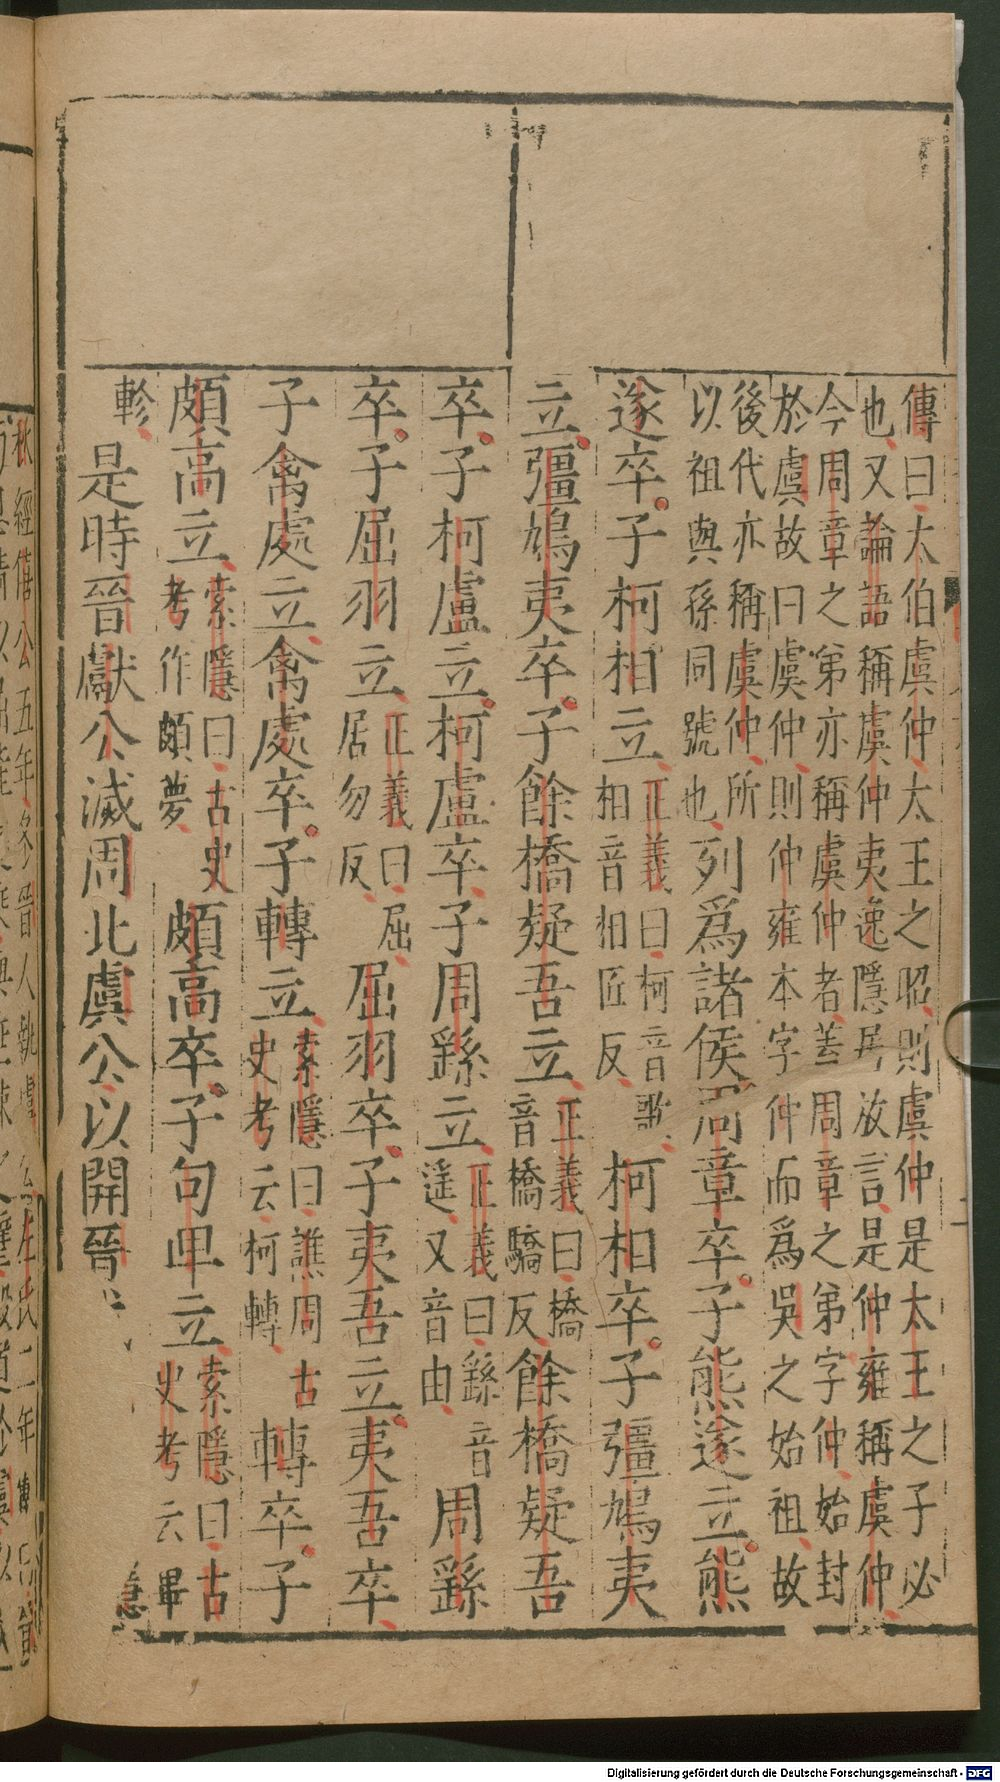 傳曰太伯虞仲太王之昭則虞仲是太王之子必
也又論語稱虞仲夷逸隱居放言是仲雍稱虞仲
今周章之弟亦稱虞仲者蓋周章之弟字仲始封
於虞故曰虞仲則仲雍本字仲而爲吳之始祖故
後代亦稱虞仲所
以祖與孫同號也
列爲諸侯周章卒子熊遂立熊
遂卒子柯相立
正義曰柯音歌
相音相匠反
柯相卒子彊鳩夷
立彊鳩夷卒子餘橋疑吾立
正義曰橋
音橋驕反
餘橋疑吾
卒子柯盧立柯盧卒子周繇立
正義曰繇音
遥又音由
周繇
卒子屈羽立
正義曰屈
居勿反
屈羽卒子夷吾立夷吾卒
子禽處立禽處卒子轉立
索隱曰譙周古
史考云柯轉
轉卒子
頗高立
索隱曰古史
考作頗夢
頗高卒子句卑立
索隱曰古
史考云畢
軫
是時晉獻公滅周北虞公以開晉
隱
Digitalisierung gefördert durch die Deutsche Forschungsgemeinschaft - DFG